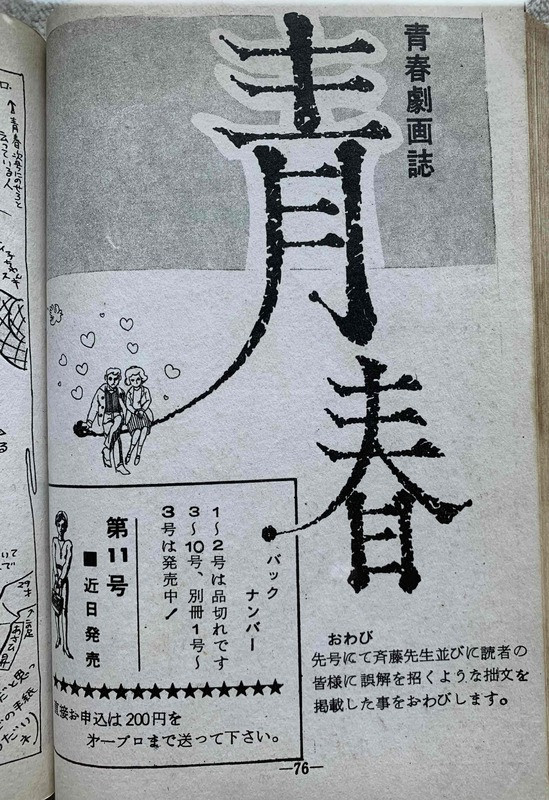 青春劇画誌
青春
バック
ナンバー
1〜2号は品切れです
3〜10号、別冊1号〜
3号は発売中!
第11号
■近日発売
直接お申込は200円を
オープロまで送って下さい。
おわび
先号にて斉藤先生並びに読者の
皆様に誤解を招くような拙文を
掲載した事をおわびします。
—76—
↑青春次号にのせろと
云っている人